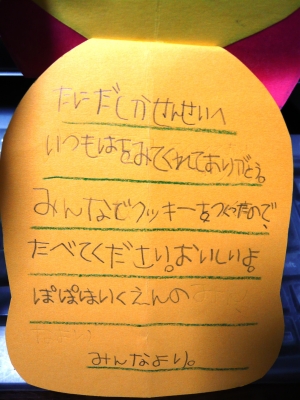 たにだしかせんせいへ
いつもはをみてくれてありがとう。
みんなでクッキーをつくったので、
たべてください。おいしいよ。
ぽぽはいくえんの
みんなより。